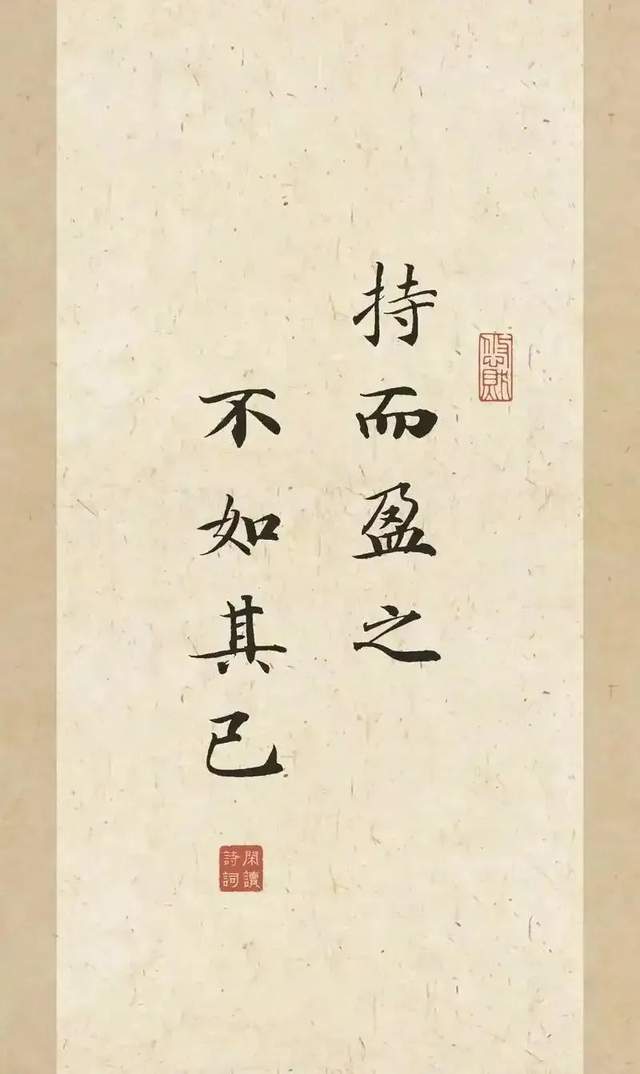 持而盈之
不如其已
閑讀
詩詞